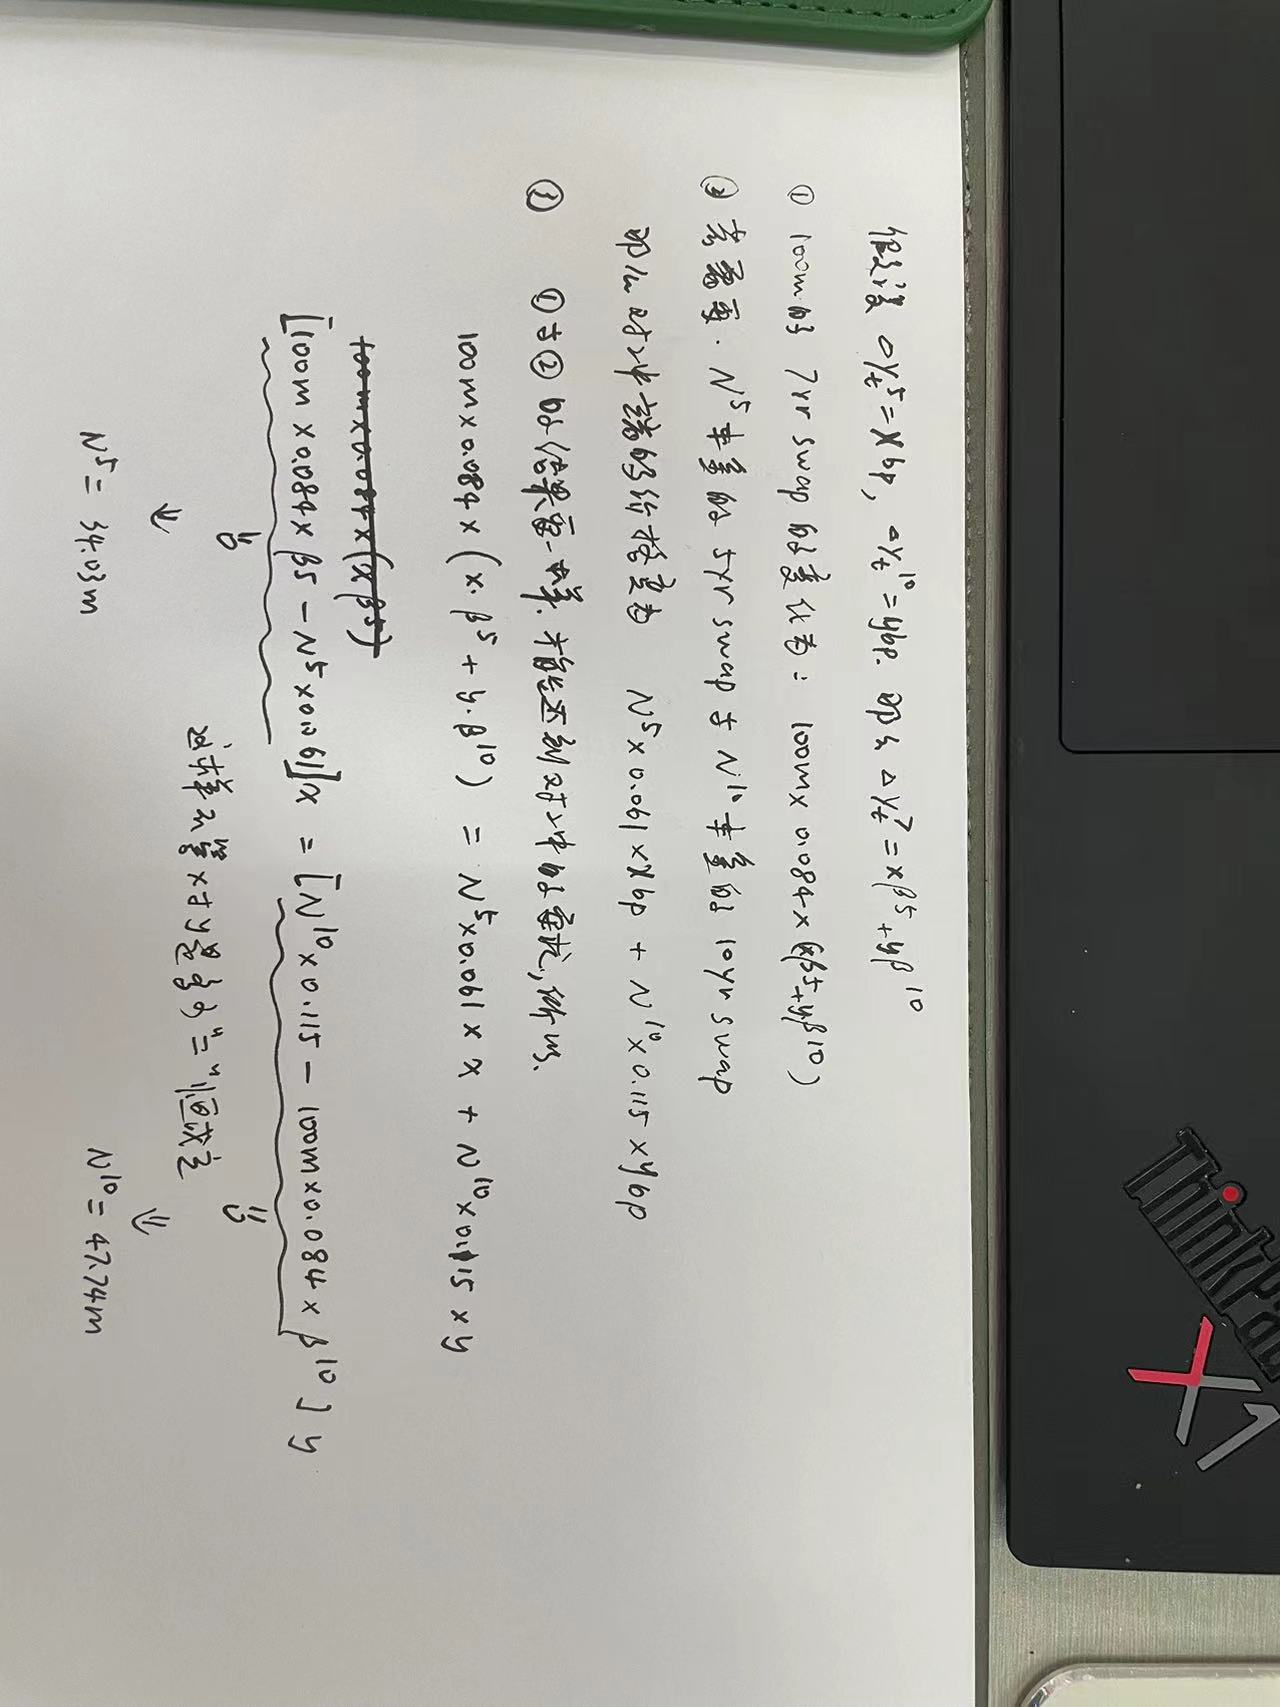 假设 △Y⁵ₜ = x bp, △Y¹⁰ₜ = y bp. 即 △Y⁷ₜ = xβ⁵ + yβ¹⁰
① 100m的 7yr swap 的变化为: 100m × 0.084 × (xβ⁵+yβ¹⁰)
② 若需要. N⁵ 单量的 5yr swap 与 N¹⁰ 单量的 10yr swap
即以对冲的 为 N⁵ × 0.061 × x bp + N¹⁰ × 0.115 × y bp
③ ①与②的结果要一样. 才能达到对冲的要求, 所以.
100m × 0.084 × (x·β⁵ + y·β¹⁰) = N⁵ × 0.061 × x + N¹⁰ × 0.115 × y
[100m × 0.084 × β⁵ − N⁵ × 0.061] x = [N¹⁰ × 0.115 − 100m × 0.084 × β¹⁰] y
0 0
x与y "=" 恒成立
⇓ ⇓
N⁵ = 34.03m N¹⁰ = 47.74m
ThinkPad
X1